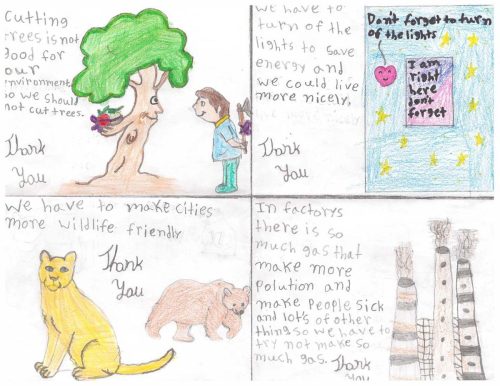 Cutting
trees is not
good for
our
environment
so we should
not cut trees.
Thank
You
We have to
turn of the
lights to save
energy and
we could live
more nicely,
Thank
You
Don't forget to turn
of the lights
I am
right
here
dont
forget
We have to make cities
more wildlife friendly
Thank
You
In factorys
there is so
much gas that
make more
polution and
make people sick
and lots of other
thing so we have to
try not make so
much gas. Thank
You